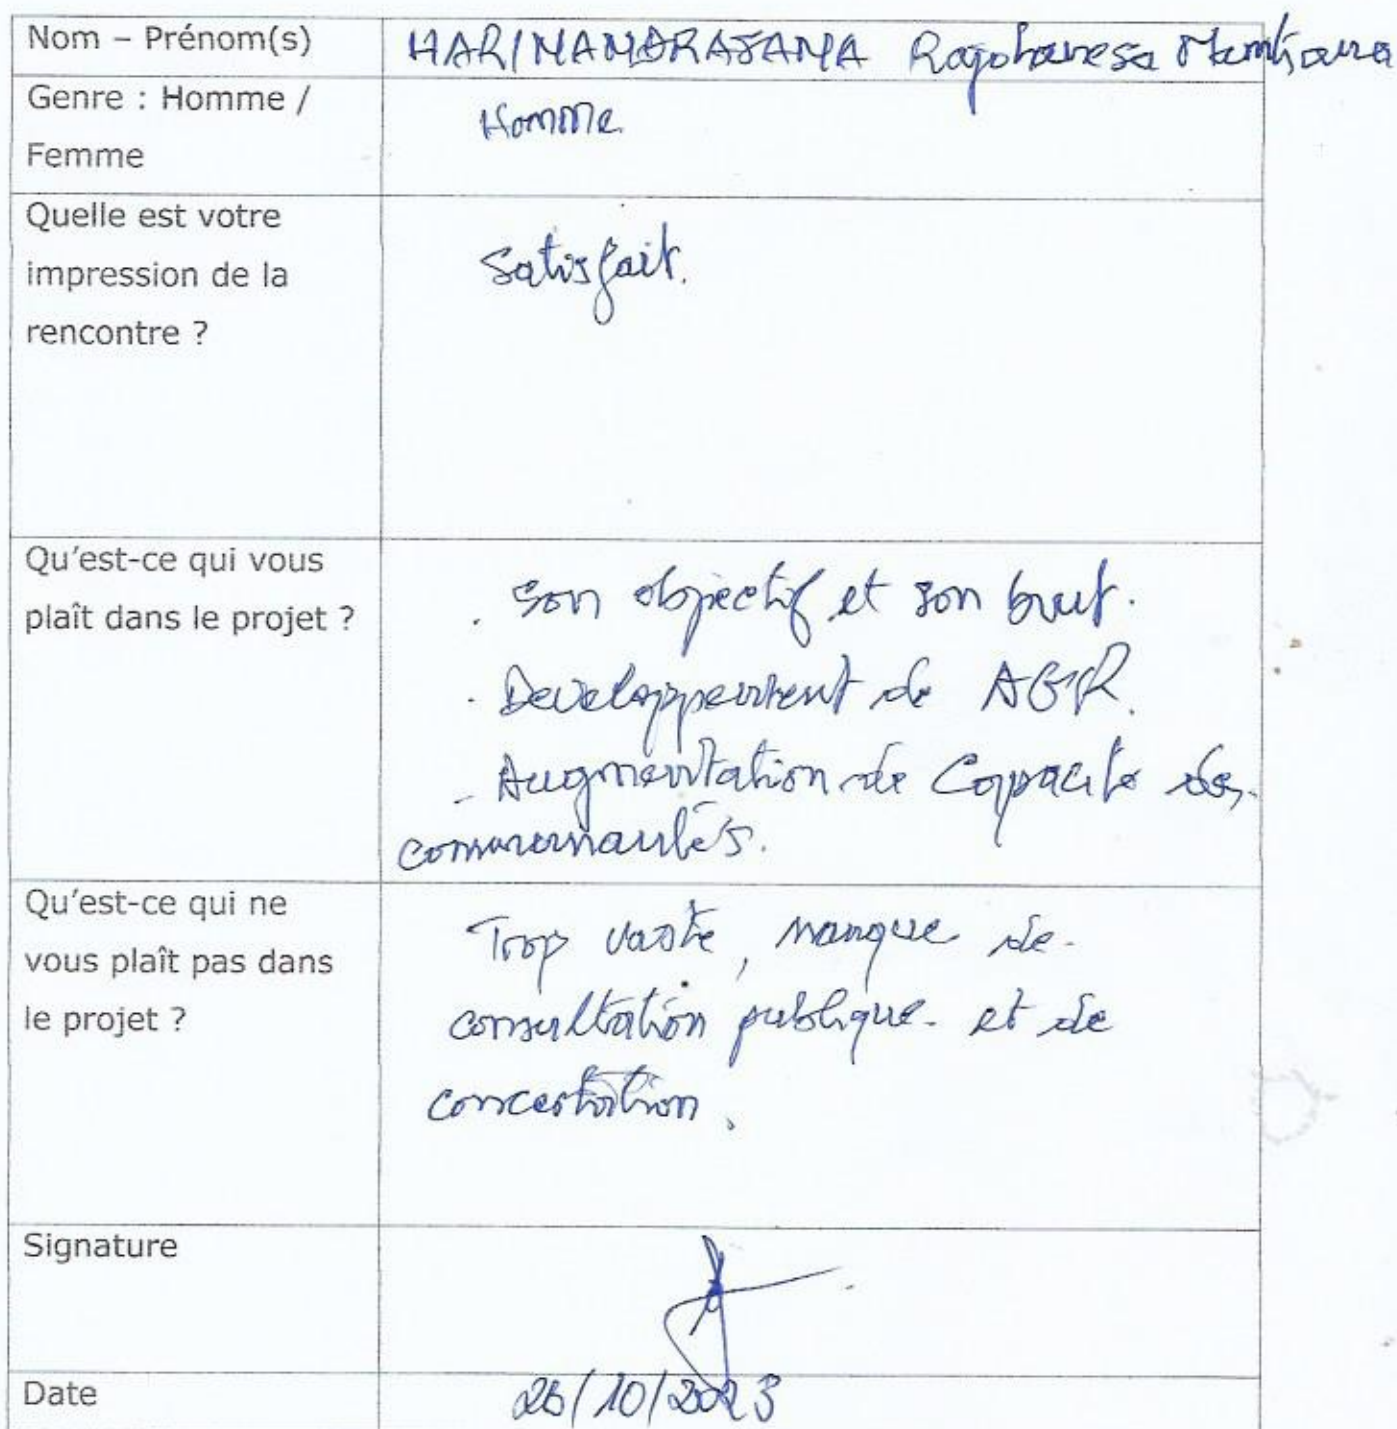 Nom – Prénom(s)
Genre : Homme /
Femme
Homme
Quelle est votre
impression de la
rencontre ?
Satisfait.
Qu'est-ce qui vous
plaît dans le projet ?
. Son objectif et son brut.
. Developpement de AGR.
- Augmentation de Capacité des
communautés.
Qu'est-ce qui ne
vous plaît pas dans
le projet ?
Trop vaste, manque de
consultation publique et de
concertation.
Signature
Date
/10/2023